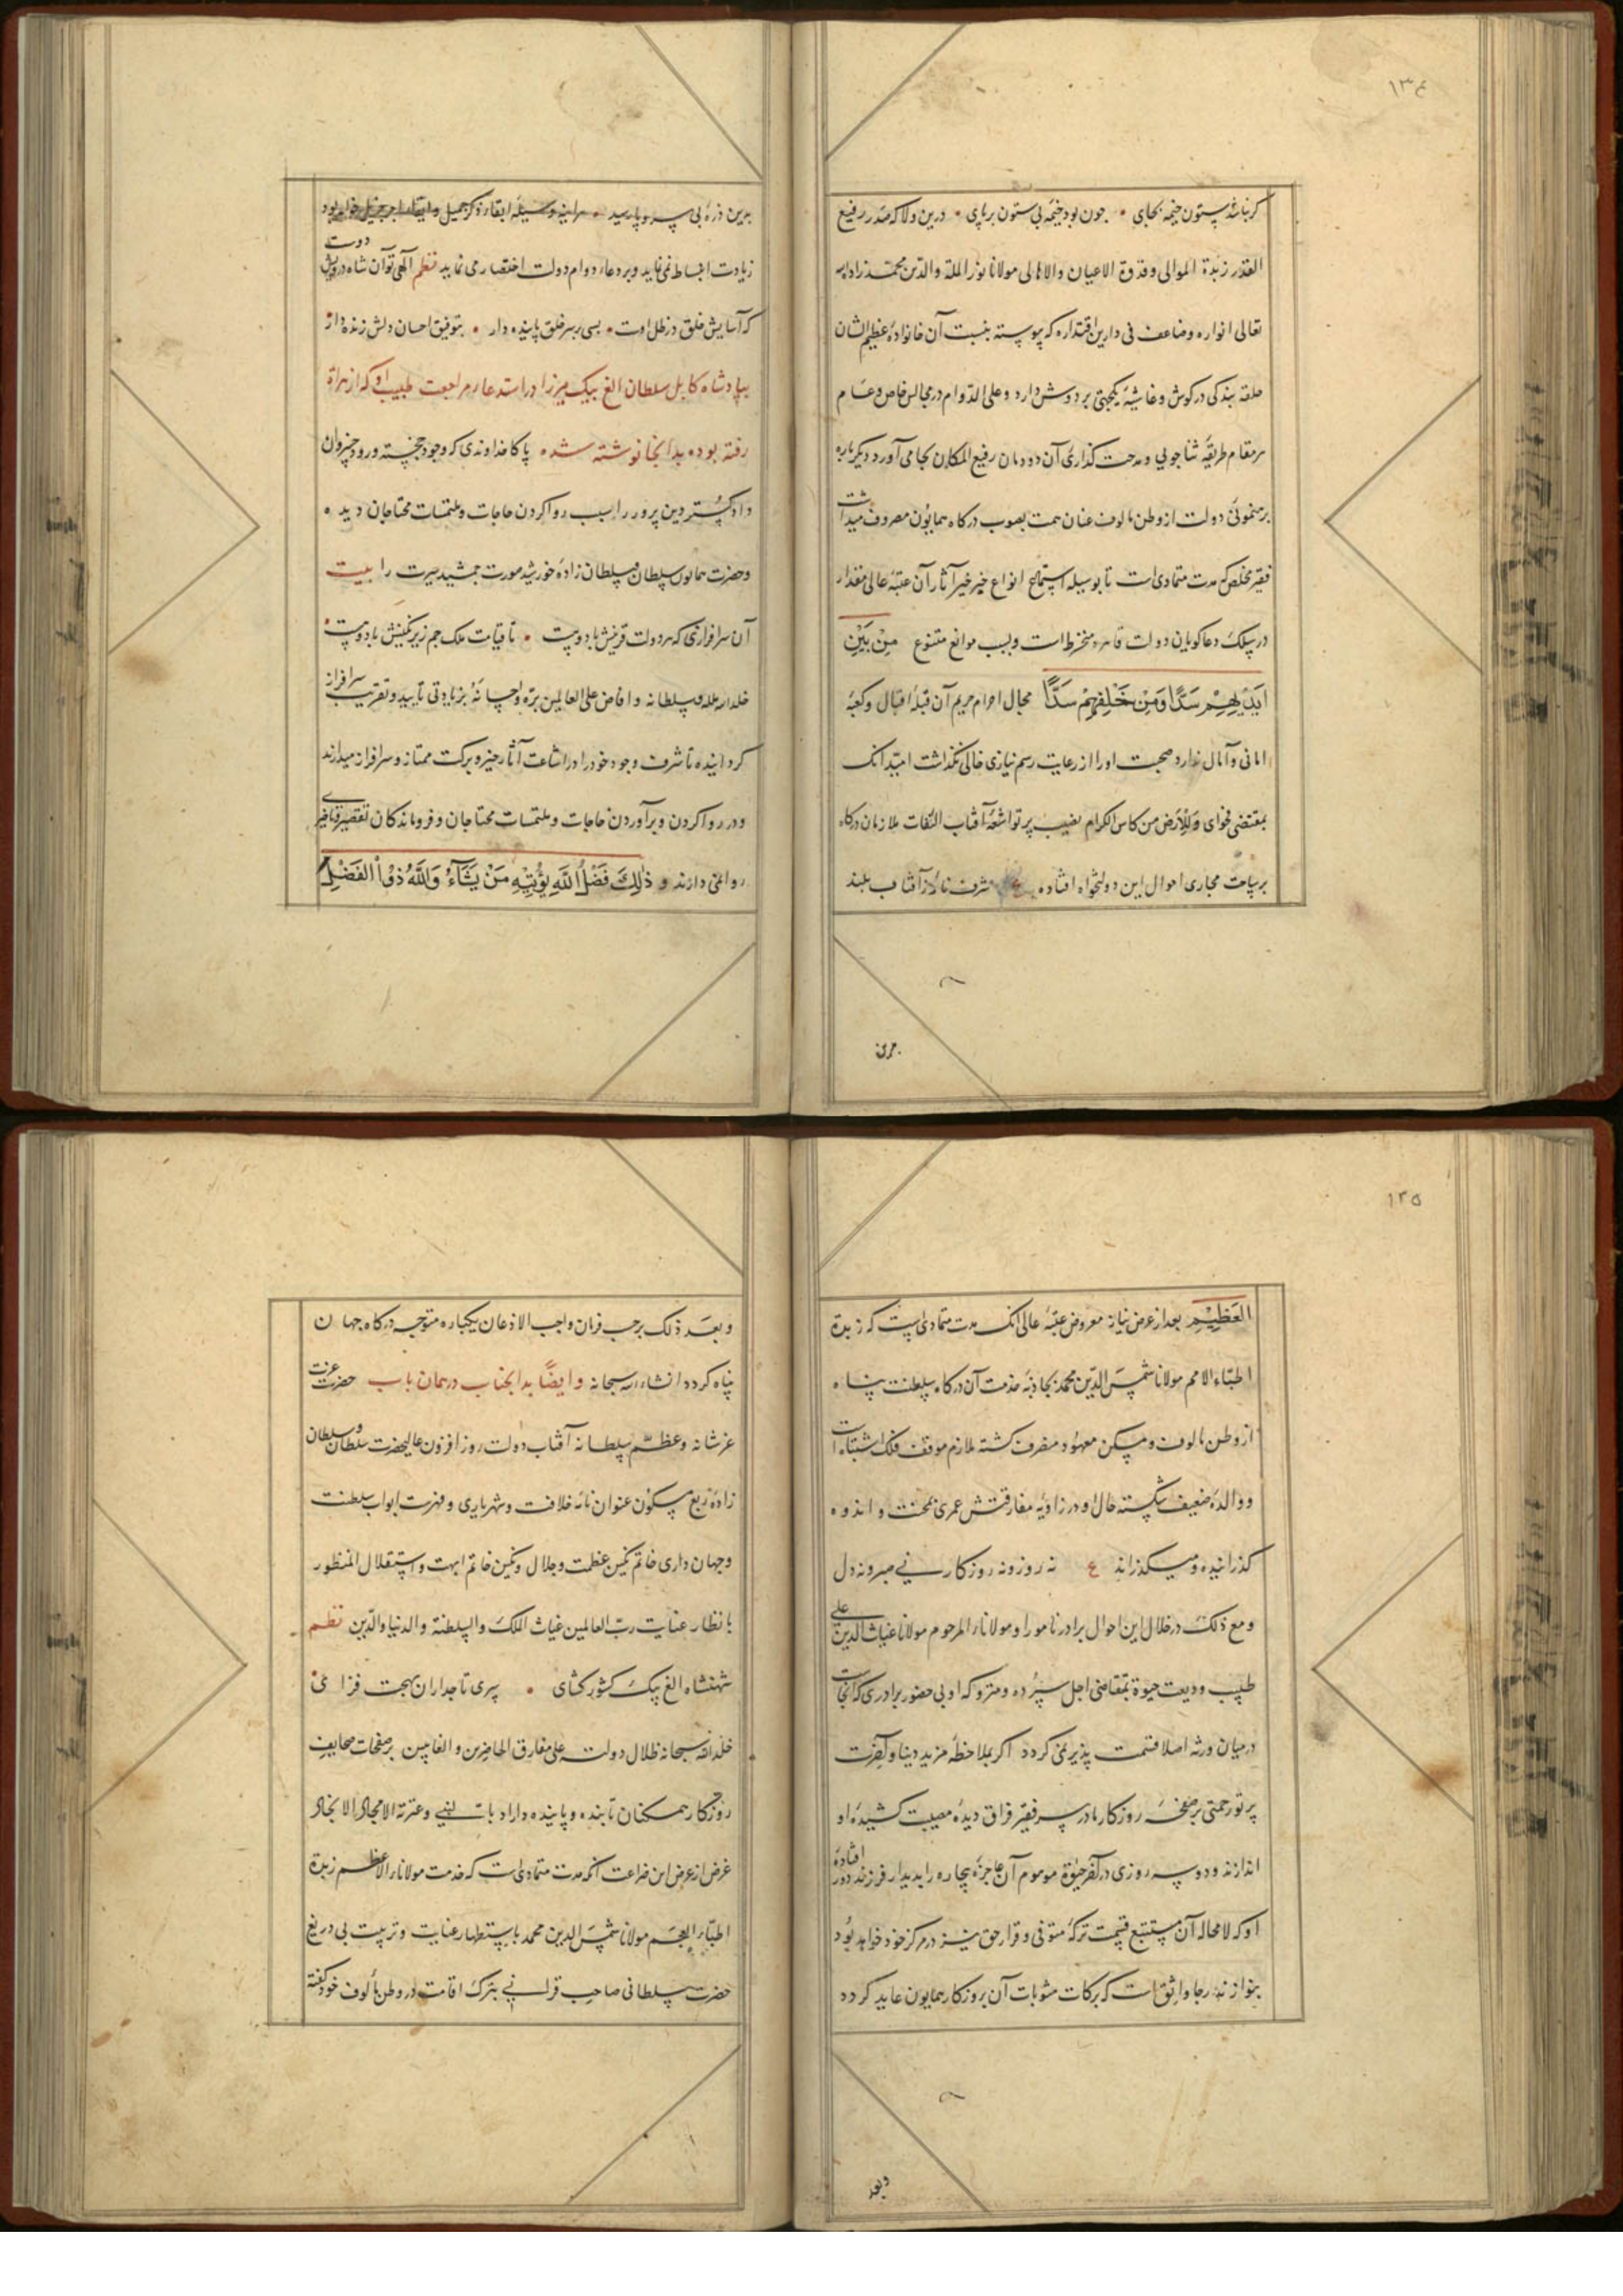 ۱۳۴
گر نباشد ستون خیمه بجای • چون بود خیمه بی ستون برپای • درین ولا که صدر رفیع
القدر زبدة الموالی وقدوة الاعیان والاهالی مولانا نور الملة والدین محمد زاد الله
تعالی انواره وضاعف فی دارین اقتداره که پیوسته بنسبت آن خانوادهٔ عظیم الشان
حلقه بندگی در کوش وغاشیهٔ یکجهتی بر دوش دارد وعلی الدوام در مجالس خاص وعام
هر مقام طریقهٔ ثناجویی ومدحت گذاری آن دودمان رفیع المکان بجا می آورد دیکر باره
برهنمونی دولت از وطن مالوف عنان همت بصوب درکاه همایون مصروف میداشت
فقیر مخلص که مدت متمادی است تا بوسیله استماع انواع خبر خیر آثار آن عتبهٔ عالی مقدار
در سلک دعاگویان دولت قاهره منخرط است وبسبب موانع متنوع مِنْ بَیْنِ
اَیْدِیْهِمْ سَدًّا وَمِنْ خَلْفِهِمْ سَدًّا مجال احرام حریم آن قبلهٔ اقبال وکعبهٔ
امانی وآمال ندارد صحبت اورا از رعایت رسم نیازی خالی نکذاشت امید آنک
بمقتضی فحوای وَلِلْاَرْضِ من کاس الکرام نصیب پرتو اشعهٔ آفتاب التفات ملازمان درکاه
بر ساحت مجاری احوال این دولتخواه افتاده ع شرف آفتاب بلند
برین
برین ذرهٔ بی سر وپا رسید • هراینه وسیلهٔ ابقاء ذکر جمیل واجر جزیل خواهد بود
زیادت انبساط نمی نماید وبر دعاء دوام دولت اختصار می نماید نظم الهی تو آن شاه درویش دوست
که آسایش خلق در ظل اوست • بسی بر سر خلق پاینده دار • بتوفیق احسان دلش زنده دار
بپادشاه کابل سلطان الغ بیک میرزا در استدعاء مراجعت طبیب او که از هراة
رفته بوده بدانجا نوشته شده پاکا خداوندی که وجود خجسته ورود خسروان
دادگستر دین پرور را سبب روا کردن حاجات وملتمسات محتاجان دیده
وحضرت همایون سلطان وسلطان زادهٔ خورشید صورت جمشید سیرت را بیت
آن سرافرازی که هر دولت قرینش باد وهست • تا قیامت ملک جم زیر نکینش باد وهست
خلد الله ملکه وسلطانه وافاض علی العالمین بره واحسانه بزیادتی تایید وتقریب سرافراز
کردانیده تا شرف وجود خود را در اشاعت آثار خیر وبرکت ممتاز وسرافراز میدارند
ودر روا کردن وبرآوردن حاجات وملتمسات محتاجان وفروماندکان تقصیر وتاخیری
روا نمی دارند و ذٰلِکَ فَضْلُ اللّٰهِ یُؤْتِیْهِ مَنْ یَّشَآءُ وَاللّٰهُ ذُوا الْفَضْلِ
۱۳۵
العَظِیْمِ بعد از عرض نیاز معروض عتبهٔ عالی آنک مدت متمادی است که زبدة
اطباء الامم مولانا شمس الدین محمد بجاذبه خدمت آن درکاه سلطنت پناه
از وطن مالوف ومسکن معهود منصرف کشته ملازم موقف فلک اشتباه است
ووالدهٔ ضعیف شکسته حال او در زاویه مفارقتش عمری بمحنت واندوه
گذرانیده ومیکذراند ع نه روز ونه روزکار نی صبر ونه دل
ومع ذلک در خلال این احوال برادر نامور او مولاناء المرحوم مولانا غیاث الدین علی
طبیب ودیعت حیوة بمتقاضی اجل سپرده ومتروکه او بی حضور برادری که آنجاست
درمیان ورثه اصلا قسمت پذیر نمی کردد اگر بملاحظهٔ مزید دنیا وآخرت
پرتو رحمتی بر صفحهٔ روزکار مادر پیر فقیر فراق دیدهٔ مصیبت کشیدهٔ او
اندازند ودو سه روزی در آخر حیوة موهوم آن عاجزهٔ بیچاره را بدیدار فرزند دور افتادهٔ
او که لامحاله آن مستتبع قسمت ترکهٔ متوفی وقرار حق نیز در مرکز خود خواهد بود
بنوازند رجا واثق است که برکات مثوبات آن بروزکار همایون عاید کردد
وبعد
وبعد ذلک برحسب فرمان واجب الاذعان یکباره متوجه درکاه جهان
پناه کردد انشاء الله سبحانه وایضًا بدانجناب در همان باب حضرت عزت
عز شانه وعظم سلطانه آفتاب دولت روز افزون عالیحضرت سلطان وسلطان
زادهٔ ربع مسکون عنوان نامهٔ خلافت وشهریاری وفهرست ابواب سلطنت
وجهان داری خاتم نکین عظمت وجلال ونکین خاتم ابهت واستقلال المنظور
بانظار عنایت رب العالمین غیاث الملک والسلطنة والدنیا والدین نظم
شهنشاه الغ بیک کشور کشای • سری تاجداران بهجت فزای
خلد الله سبحانه ظلال دولته علی مفارق الحاضرین والغایبین بر صفحات صحایف
روزکار همکنان تابنده وپاینده داراد بالنبی وعترته الامجاد الانجاد
غرض از عرض این ضراعت آنکه مدت متمادی است که خدمت مولاناء الاعظم زبدة
اطباء العجم مولانا شمس الدین محمد باستظهار عنایت وتربیت بی دریغ
حضرت سلطانی صاحب قرانی بترک اقامت در وطن مألوف خود گفته